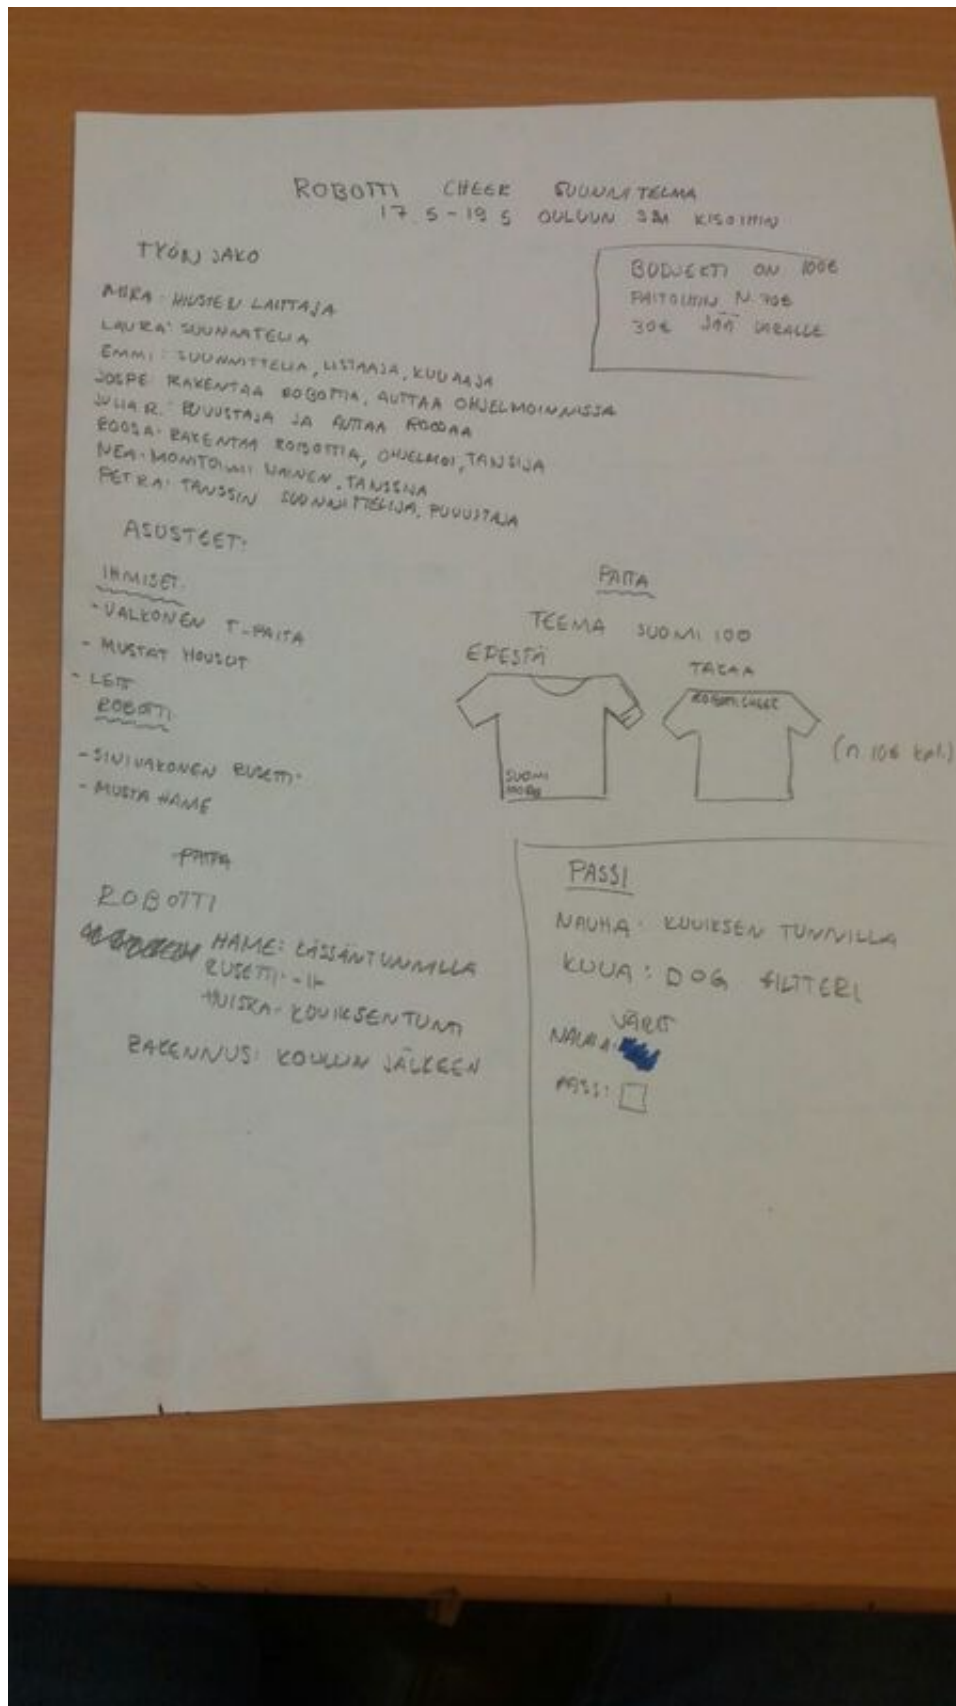 ROBOTTI CHEER SUUNNATELMA
17.5-19.5 OULUUN SM KISOIHIN
TYÖNJAKO
BUDJEKTI ON 100€
PAITOIHIN N.70€
30€ JÄÄ VARALLE
MIRA: HIUSTEN LAITTAJA
LAURA: SUUNNATELIA
EMMI: SUUNNITTELIA, LISTAAJA, KUVAAJA
JOSPE: RAKENTAA ROBOTTIA, AUTTAA OHJELMOINNISSA
JULIA R.: PUVUSTAJA JA AUTTAA ROOSAA
ROOSA: RAKENTAA ROBOTTIA, OHJELMOI, TANSIJA
NEA: MONITOIMI NAINEN, TANSSIJA
PETRA: TANSSIN SUUNNITTELIJA, PUVUSTAJA
ASUSTEET:
IHMISET:
- VALKONEN T-PAITA
- MUSTAT HOUSUT
- LETIT
ROBOTTI
- SINIVAKONEN RUSETTI
- MUSTA HAME
PAITA
TEEMA SUOMI 100
EDESTÄ
TAKAA
ROBOTTI CHEER
SUOMI
100
(n. 10€ kpl.)
PAITA
ROBOTTI
HAME: KÄSSÄNTUNNILLA
RUSETTI: -II-
HUISKA: KUVIKSEN TUNTI
RAKENNUS: KOULUN JÄLKEEN
PASSI
NAUHA: KUVIKSEN TUNNILLA
KUVA: DOG FILTTERI
VÄRIT
NAUHA:
PASSI: